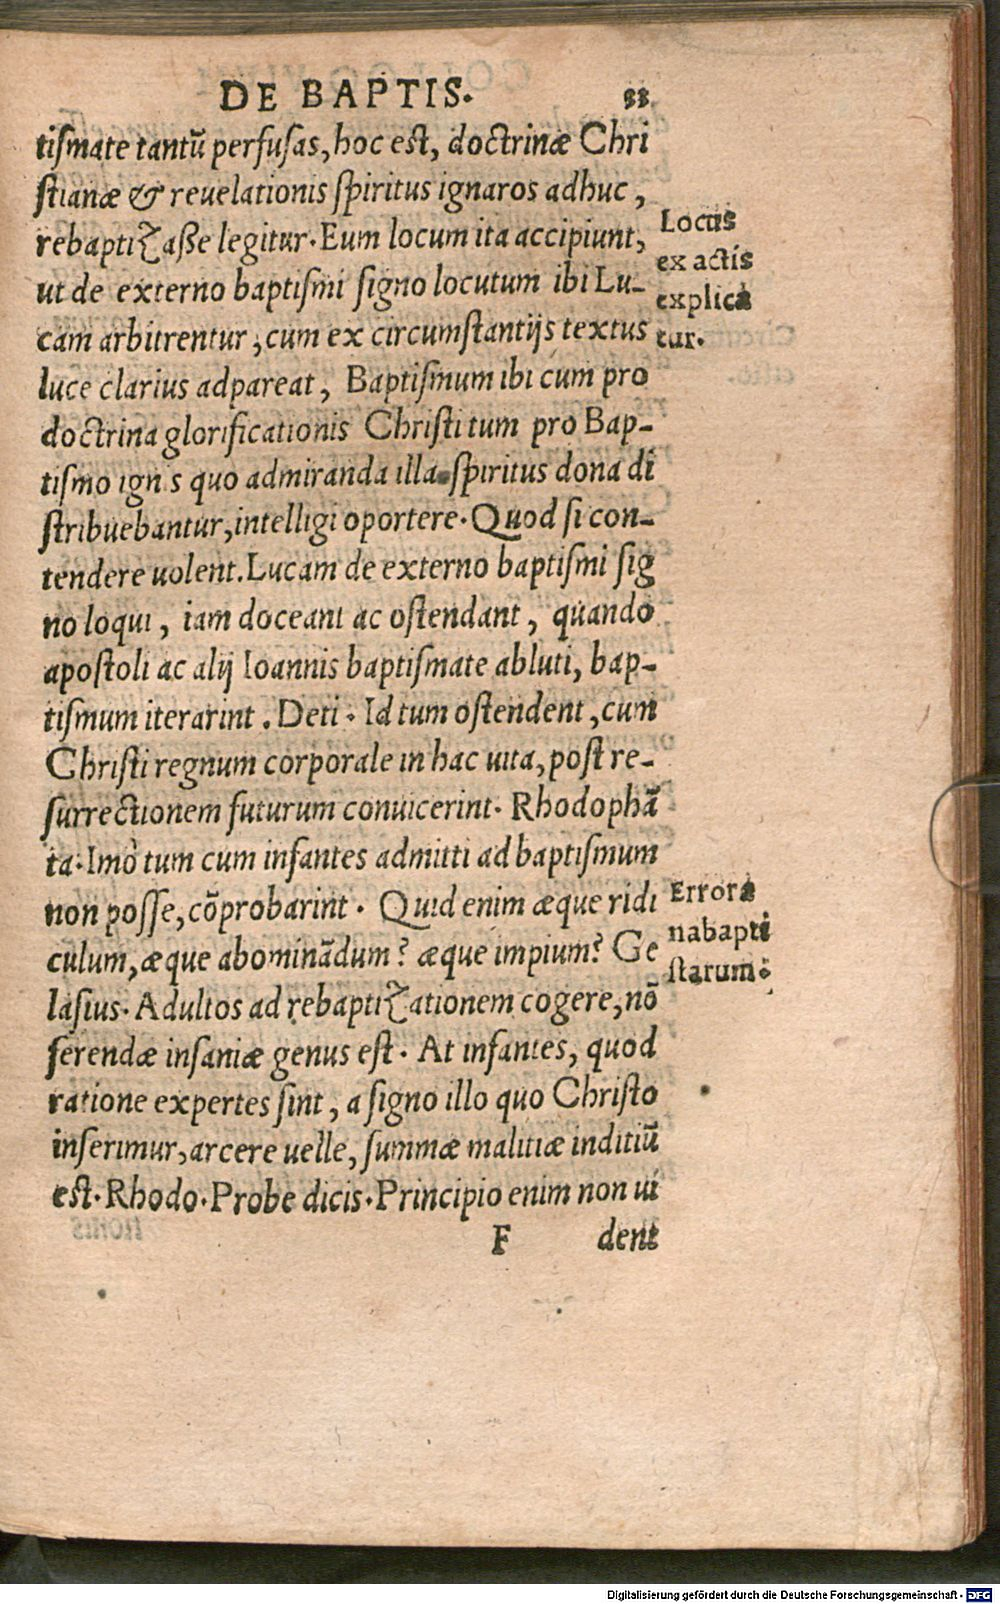 DE BAPTIS. 33
tiſmate tantũ perfuſas, hoc est, doctrinæ Chri
ſtianæ & reuelationis ſpiritus ignaros adhuc,
rebaptizaſſe legitur. Eum locum ita accipiunt,
ut de externo baptiſmi ſigno locutum ibi Lu-
cam arbitrentur, cum ex circumſtantijs textus
luce clarius adpareat, Baptiſmum ibi cum pro
doctrina glorificationis Chriſti tum pro Bap-
tiſmo ign s quo admiranda illa ſpiritus dona di
ſtribuebantur, intelligi oportere. Quod ſi con-
tendere uolent. Lucam de externo baptiſmi ſig
no loqui, iam doceant ac oſtendant, quando
apoſtoli ac alij Ioannis baptiſmate abluti, bap-
tiſmum iterarint. Deti. Id tum oſtendent, cum
Chriſti regnum corporale in hac uita, poſt re-
ſurrectionem futurum conuicerint. Rhodophã
ta. Imò tum cum infantes admitti ad baptiſmum
non poſſe, cõprobarint. Quid enim æque ridi
culum, æque abominãdum? æque impium? Ge
laſius. Adultos ad rebaptizationem cogere, nõ
ferendæ inſaniæ genus eſt. At infantes, quod
ratione expertes ſint, a ſigno illo quo Chriſto
inſerimur, arcere uelle, ſummæ malitiæ inditiũ
eſt. Rhodo. Probe dicis. Principio enim non ui
F dent
Locus
ex actis
explicа
tur.
Error a
nabapti
ſtarum.
Digitalisierung gefördert durch die Deutsche Forschungsgemeinschaft - DFG